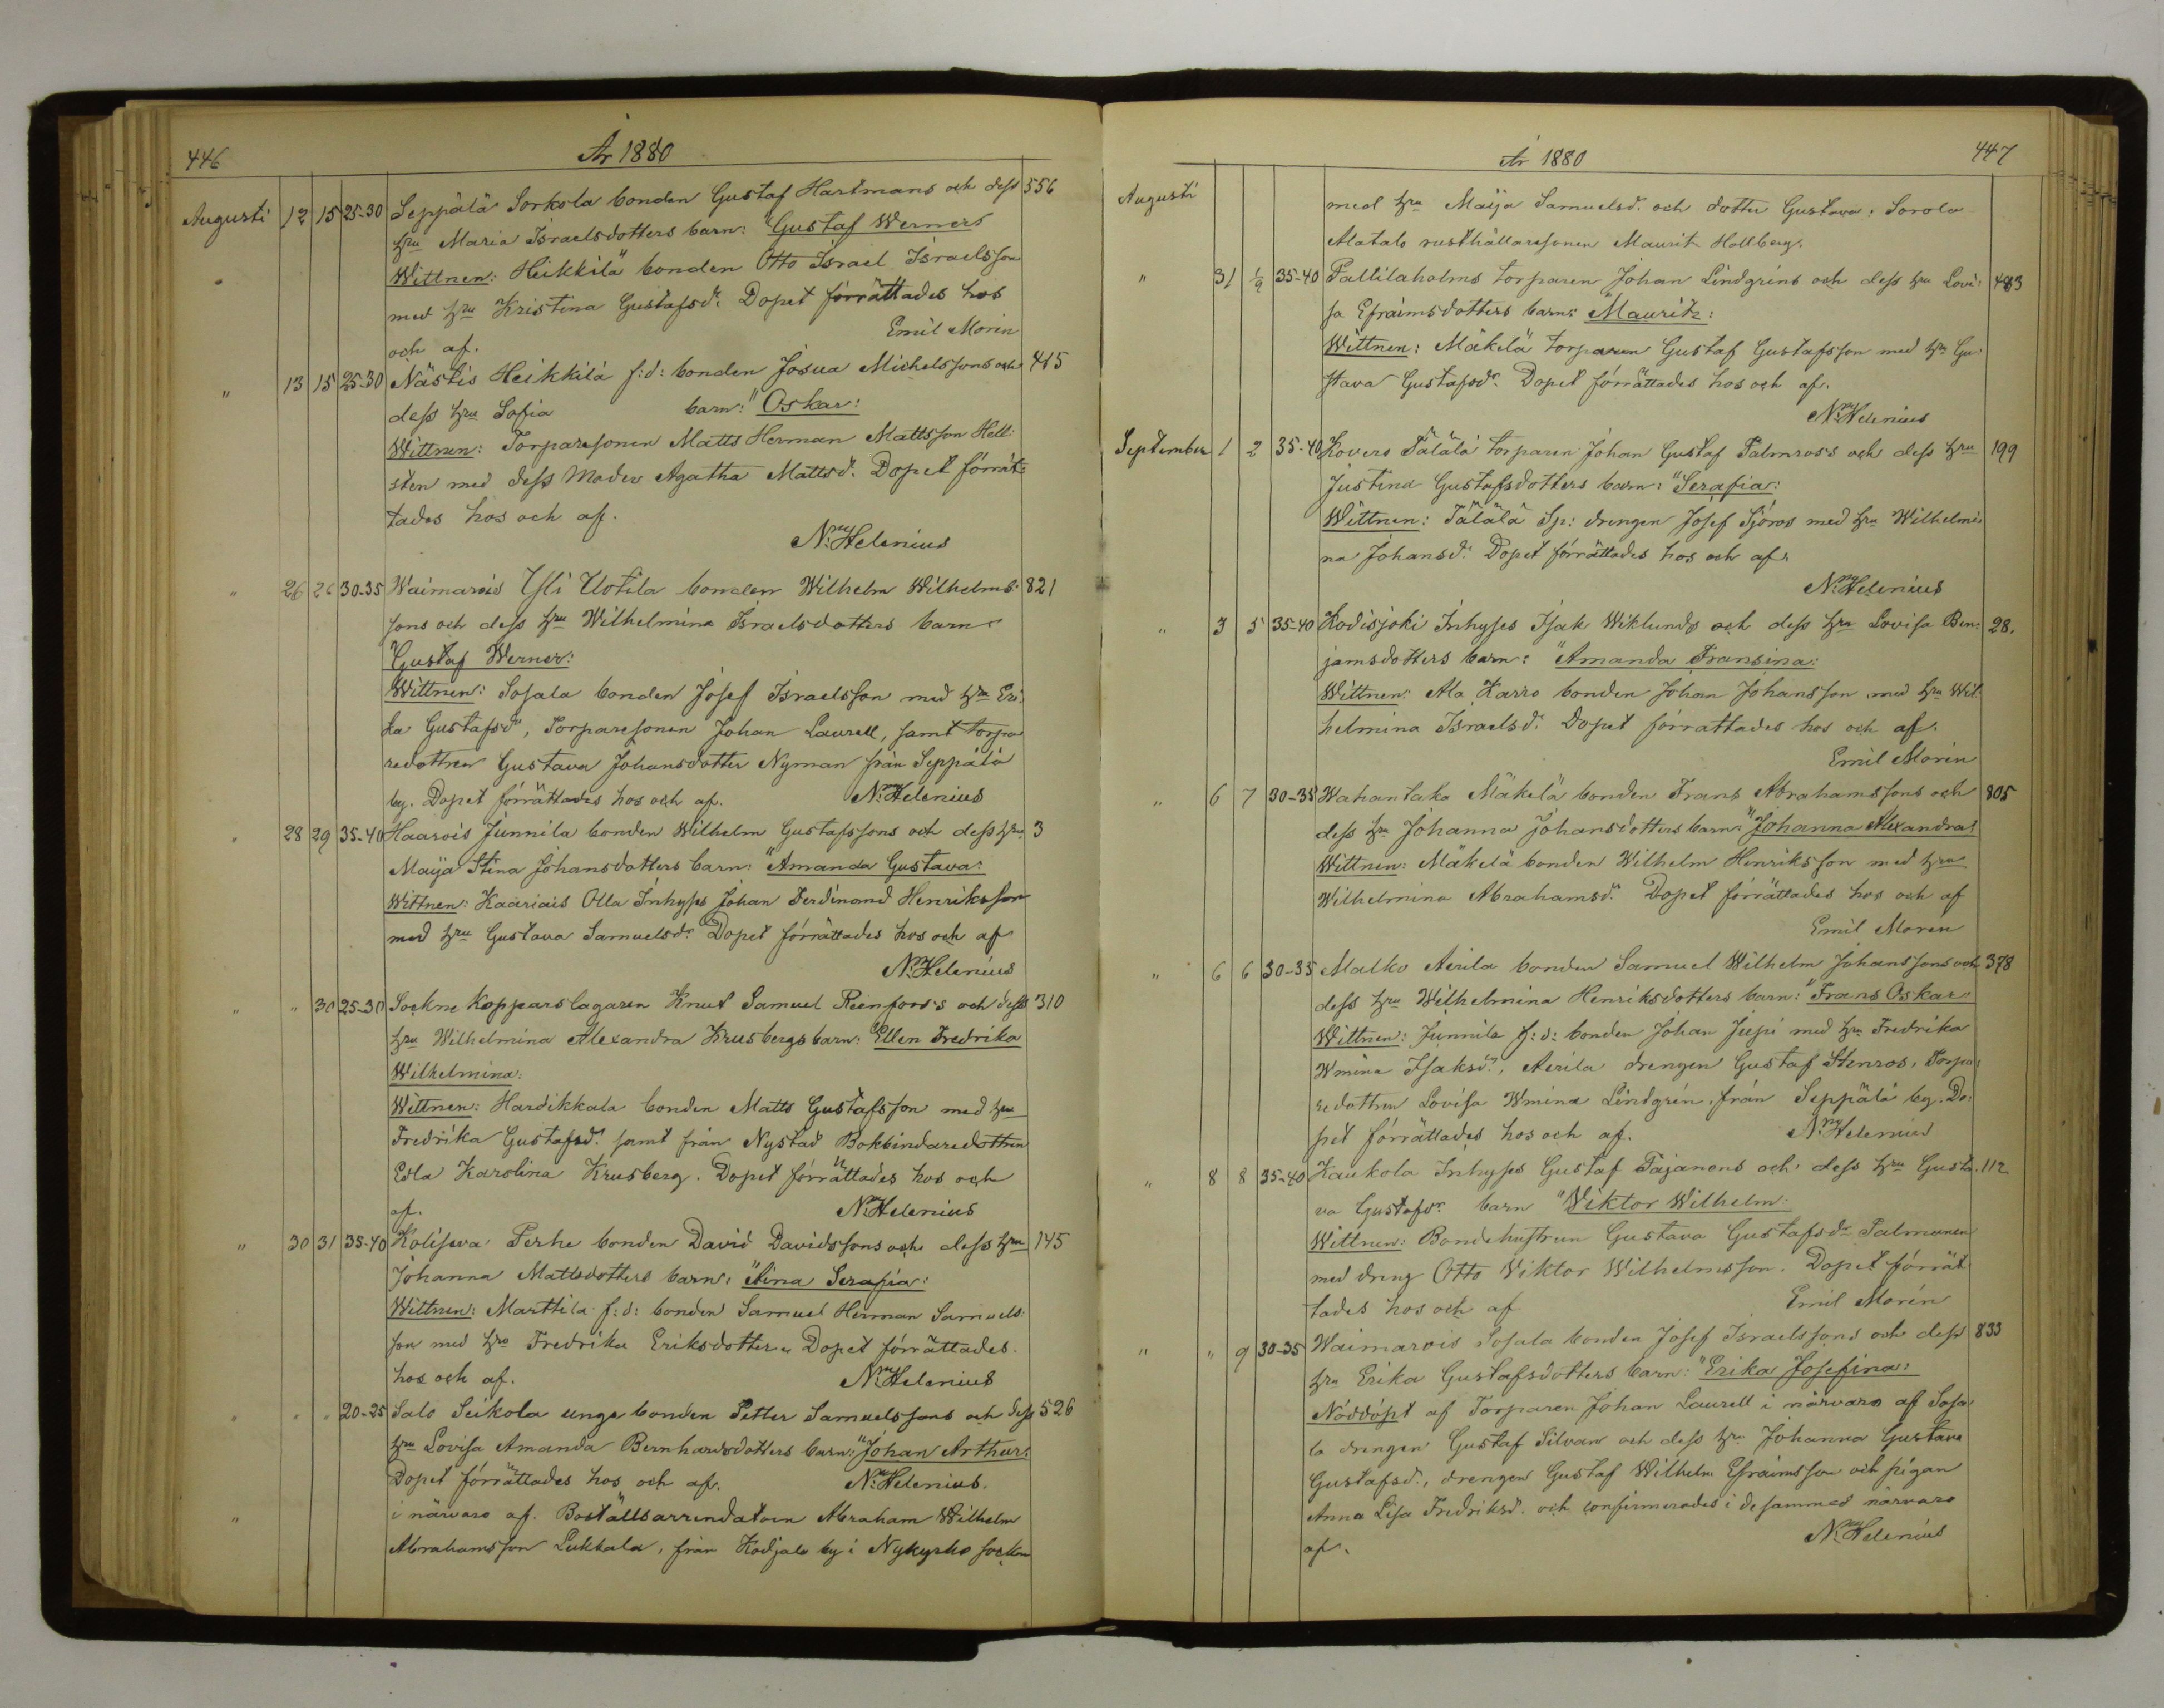 446
År 1880
Augusti 12 15 25-30 Seppälä Sorkola bonden Gustaf Hartmans och dess 556
hru Maria Israelsdotters barn: "Gustaf Werner:
Wittnen: Heikkilä bonden Otto Israel Israelsson
med hru Kristina Gustafsdr. Dopet förrättades hos
och af. Emil Morin
" 13 15 25-30 Nästis Heikkilä f:d: bonden Josua Michelssons och 415
dess hru Sofia barn: "Oskar:
Wittnen: Torparesonen Matts Herman Mattsson Hell:
sten med dess Moder Agatha Mattsdr. Dopet förrät:
tades hos och af.
N. Helenius
" 26 26 30-35 Waimarois Yli Uotila bonden Wilhelm Wilhelms: 821
sons och dess hru Wilhelmina Israelsdotters barn
"Gustaf Werner:
Wittnen: Sosala bonden Josef Israelsson med hru Eri:
ka Gustafsdr, Torparesonen Johan Laurell, samt torpa
redottren Gustava Johansdotter Nyman från Seppälä
by. Dopet förrättades hos och af. N. Helenius
" 28 29 35-40 Haarois Junnila bonden Wilhelm Gustafssons och dess hru 3
Maija Stina Johansdotters barn: "Amanda Gustava:
Wittnen: Kaariais Olla Inhyses Johan Ferdinand Henriksson
med hru Gustava Samuelsdr. Dopet förrättades hos och af
N. Helenius
" " 30 25-30 Sockne Kopparslagaren Knut Samuel Reinfors's och dess 310
hru Wilhelmina Alexandra Krusbergs barn: "Ellen Fredrika
Wilhelmina:
Wittnen: Hardikkala bonden Matts Gustafsson med hru
Fredrika Gustafsdr. samt från Nystad Bokbindaredottren
Edla Karolina Krusberg. Dopet förrättades hos och
af. N. Helenius
" 30 31 35-40 Koliseva Perhe bonden David Davidssons och dess hru 145
Johanna Mattsdotters barn: "Aina Serafia:
Wittnen: Marttila f:d: bonden Samuel Herman Samuels:
son med hru Fredrika Eriksdotter. Dopet förrättades
hos och af. N. Helenius
" " " 20-25 Salo Seikola unga bonden Petter Samuelssons och dess 526
hru Lovisa Amanda Bernhardsdotters barn: "Johan Arthur:
Dopet förrättades hos och af. N. Helenius.
" i närvaro af. Boställsarrendatorn Abraham Wilhelm
Abrahamsson Lukkala, från Kodjala by i Nykyrko socken
År 1880
447
Augusti med hru Maija Samuelsdr. och dotter Gustava, Sorola
Alatalo rusthållaresonen Maurits Hollberg.
" 31 1/9 35-40 Paltilaholms torparen Johan Lindgrens och dess hru Lovi: 483
sa Efraimsdotters barn: "Maurits:
Wittnen: Mäkelä torparen Gustaf Gustafsson med hru Gu:
stava Gustafsdr. Dopet förrättades hos och af.
N. Helenius
September 1 2 35-40 Kovero Tälälä torparen Johan Gustaf Palmros's och dess hru 199
Justina Gustafsdotters barn: "Serafia:
Wittnen: Tälälä Sp: drengen Josef Sjöros med hru Wilhelmi:
na Johansdr. Dopet förrättades hos och af.
N. Helenius
" 3 5 35-40 Kodisjoki Inhyses Isak Wiklunds och dess hru Lovisa Ben: 28.
jamsdotters barn: "Amanda Fransina:
Wittnen: Ala Karro bonden Johan Johansson med hru Wil:
helmina Israelsdr. Dopet förrättades hos och af.
Emil Morin
" 6 7 30-35 Wahantaka Mäkelä bonden Frans Abrahamssons och 805
dess hru Johanna Johansdotters barn: "Johanna Alexandra:
Wittnen: Mäkelä bonden Wilhelm Henriksson med hru
Wilhelmina Abrahamsdr. Dopet förrättades hos och af
Emil Moren
" 6 6 30-35 Malko Aerila bonden Samuel Wilhelm Johanssons och 378
dess hru Wilhelmina Henriksdotters barn: "Frans Oskar:
Wittnen: Junnila f:d: bonden Johan Jiepi med hru Fredrika
Wmina Isaksdr., Aerila drengen Gustaf Stenros, Torpa:
redottren Lovisa Wmina Lindgren, från Seppälä by. Do:
pet förrättades hos och af. N. Helenius
" 8 8 35-40 Kaukola Inhyses Gustaf Pajanens och dess hru Gusta: 112
va Gustafsdr. barn "Viktor Wilhelm:
Wittnen: Bondehustrun Gustava Gustafsdr Palmunen
med dreng Otto Viktor Wilhelmsson. Dopet förrät
tades hos och af Emil Morén
" " 9 30-35 Waimarois Sosala bonden Josef Israelssons och dess 833
hru Erika Gustafsdotters barn: "Erika Josefina:
Nöddöpt af Torparen Johan Laurell i närvaro af Sosa:
la drengen Gustaf Silvan och dess hru Johanna Gustava
Gustafsdr., drengen Gustaf Wilhelm Efraimsson och pigan
Anna Lisa Fredriksdr. och confirmerades i desammas närvaro
af. N. Helenius